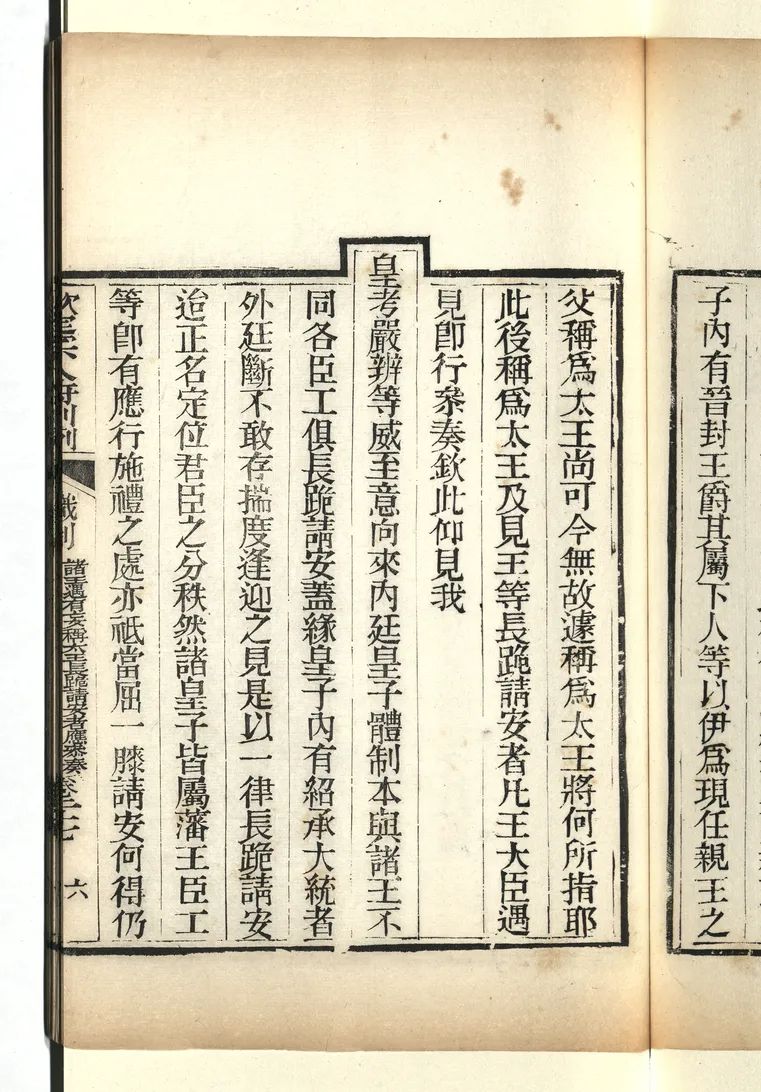 子內有晉封王爵其屬下人等以伊爲現任親王之
父稱爲太王尚可今無故遽稱爲太王將何所指耶
此後稱爲太王及見王等長跪請安者凡王大臣遇
見卽行叅奏欽此仰見我
皇考嚴辨等威至意向來內廷皇子體制本與諸王不
同各臣工俱長跪請安蓋緣皇子內有紹承大統者
外廷斷不敢存揣度逢迎之見是以一律長跪請安
迨正名定位君臣之分秩然諸皇子皆屬藩王臣工
等卽有應行施禮之處亦祗當屈一膝請安何得仍
諸王遇有妄稱太王長跪請安者應叅奏
六